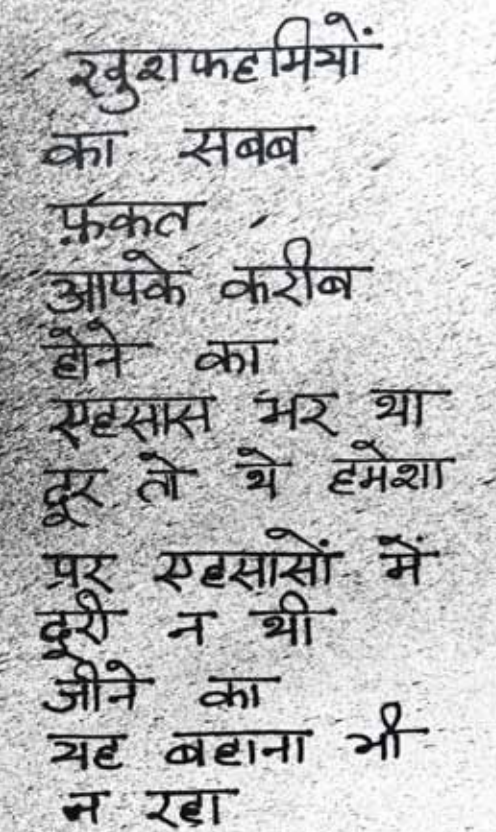 खुशफहमियों
का सबब
फ़कत
आपके करीब
होने का
एहसास भर था
दूर तो थे हमेशा
पर एहसासों में
दूरी न थी
जीने का
यह बहाना भी
न रहा